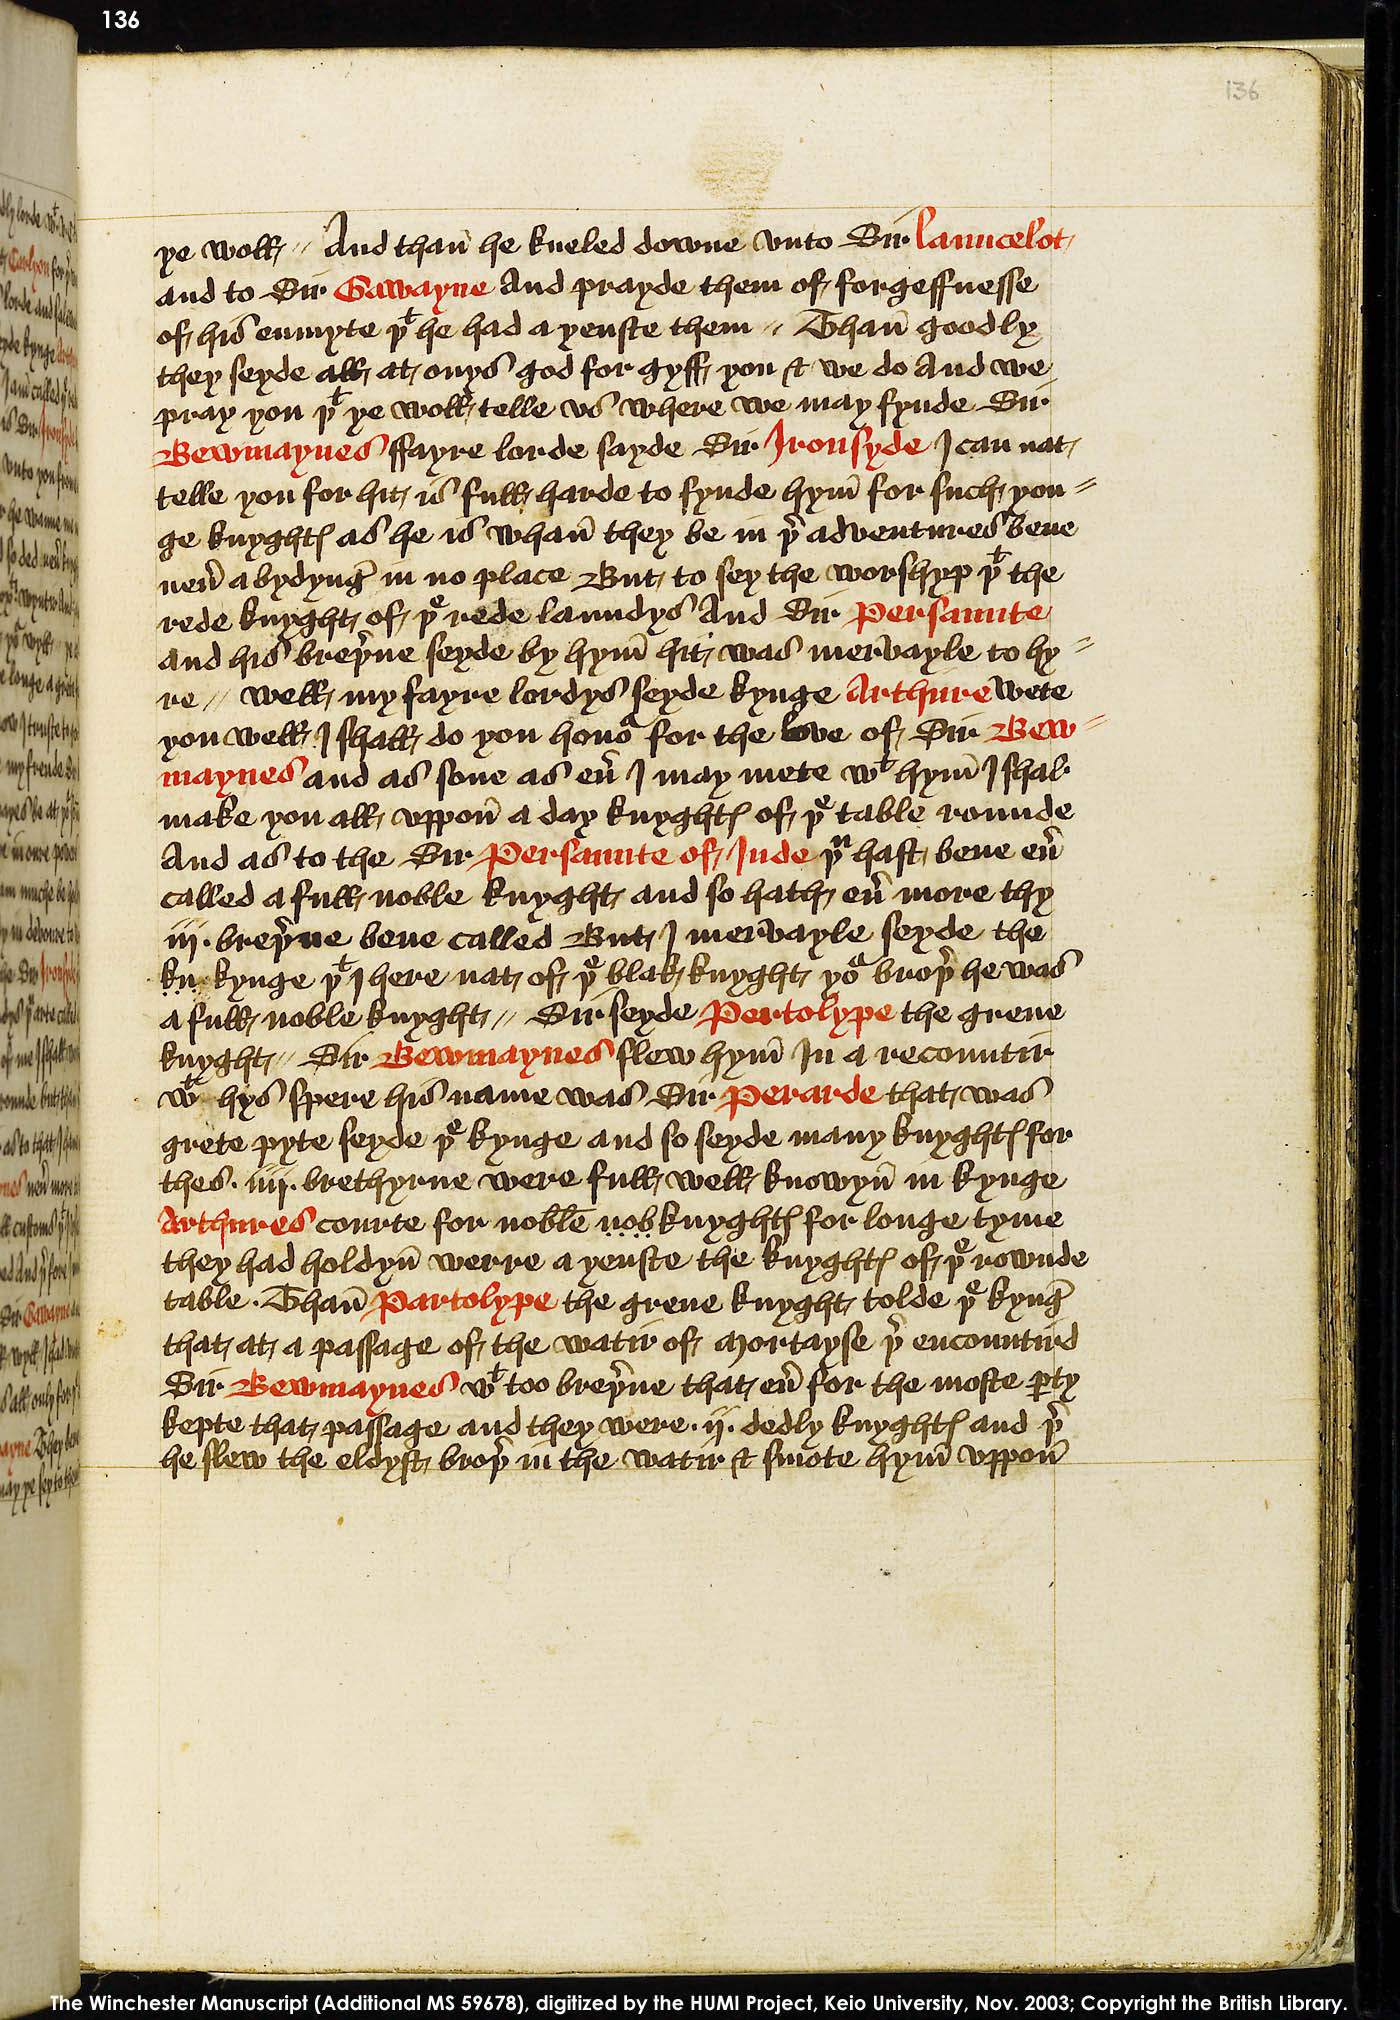 136
136
ye woll // And than̄ he kneled downe vnto Sir Launcelot
and to Sir Gawayne And prayde them of forgeffnesse
of his enmyte þᵗ he had ayenste them // Than̄ goodly
they seyde all at onys god for gyff you & we do And we
pray you þᵗ ye woll telle vs where we may fynde Sir
Bewmaynes ffayre lorde sayde Sir Ironsyde I can nat
telle you for hit is full harde to fynde hym̄ for such you=
ge knyghtꝭ as he is whan̄ they be in þʳ adventures bene
neu̾ abydyng̾ in no place But to sey the worshyp þᵗ the
rede knyght of þᵉ rede laundys And Sir Persaunte
and his breþʳne seyde by hym̄ hit was mervayle to hy=
re // Well my fayre lordys seyde kynge Arthure wete
you well I shall do you honoʳ for the love of Sir Bew=
maynes and as sone as eu̾ I may mete wᵗ hym̄ I shal
make you all vppon̄ a day knyghtꝭ of þᵉ table rounde
And as to the Sir Persaunte of Inde þᵘ hast bene eu̾
called a full noble knyght and so hath eu̾ more thy
iij. breþʳne bene called But I mervayle seyde the
kn kynge þᵗ I here nat of þᵉ blak knyght yoʳ broþʳ he was
a full noble knyght // Sir seyde Pertolype the grene
knyght // Sir Bewmaynes slew hym̄ In a recountir
wᵗ hys spere his name was Sir Perarde that was
grete pyte seyde þᵉ kynge and so seyde many knyghtꝭ for
thes. iiij. brethyrne were full well knowyn̄ in kynge
Arthures courte for noble nob knyghtꝭ for longe tyme
they had holdyn̄ werre ayenste the knyghtꝭ of þᵉ rownde
table. Than̄ Partolype the grene knyght tolde þᵉ kyng̾
that at a passage of the watir of Mortayse þʳ encountird
Sir Bewmaynes wᵗ too breþʳne that eu̾ for the moste ꝑty
kepte that passage and they were. ij. dedly knyghtꝭ and þʳ
he slew the eldyst broþʳ in the watir & smote hym̄ vppon̄
The Winchester Manuscript (Additional MS 59678), digitized by the HUMI Project, Keio University, Nov. 2003; Copyright the British Library.